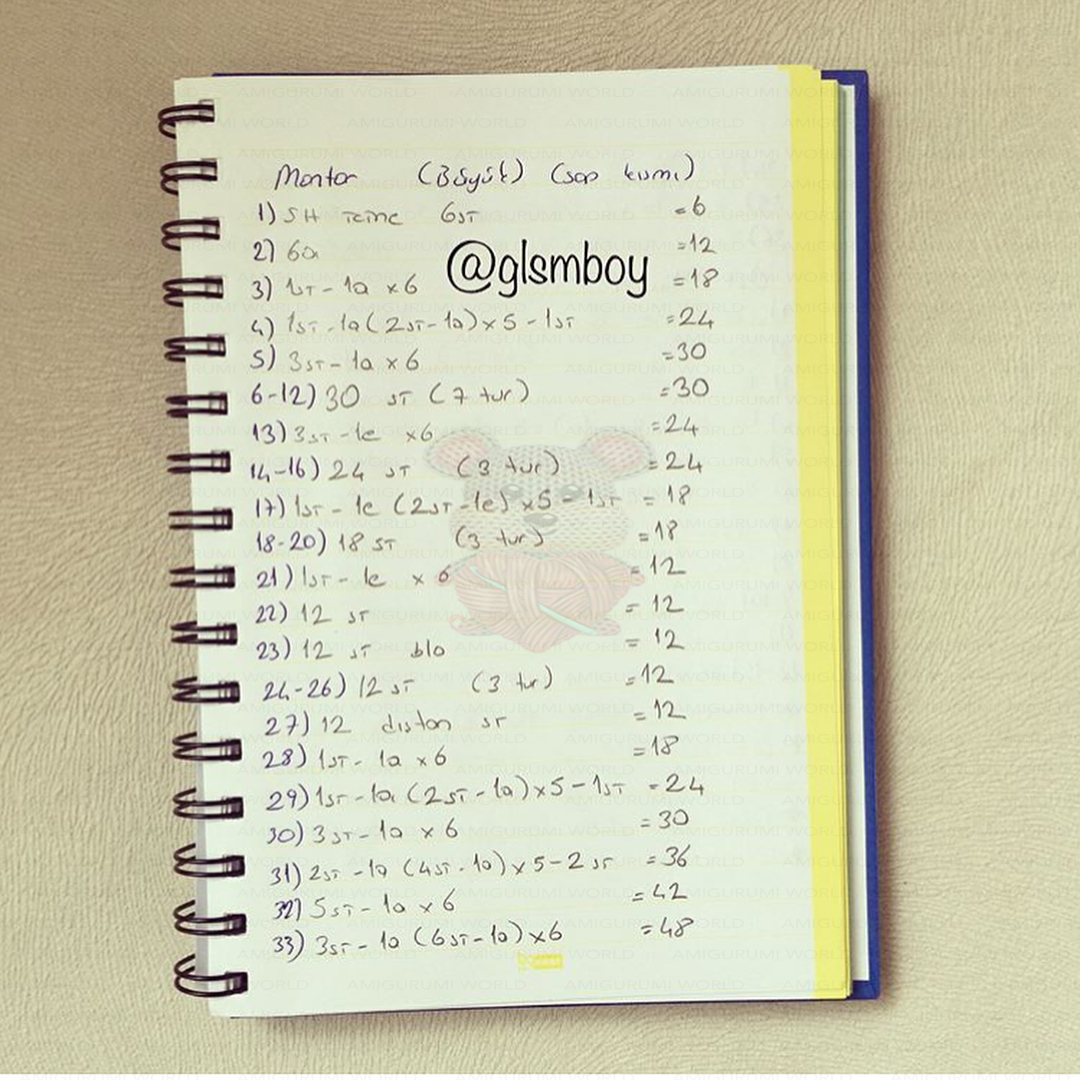 Mantar (Büyük) (sap kısmı)
1) SH içine 6sı =6
2) 6a =12
@glsmboy
3) 1sı - 1a x6 =18
4) 1sı - 1a (2sı - 1a) x 5 - 1sı =24
5) 3sı - 1a x 6 =30
6-12) 30 sı (7 tur) =30
13) 3sı - 1e x6 =24
14-16) 24 sı (3 tur) =24
17) 1sı - 1e (2sı - 1e) x5 - 1sı = 18
18-20) 18 sı (3 tur) =18
21) 1sı - 1e x 6 = 12
22) 12 sı = 12
23) 12 sı blo = 12
24-26) 12 sı (3 tur) =12
27) 12 dıştan sı =12
28) 1sı - 1a x6 =18
29) 1sı - 1a (2sı - 1a) x 5 - 1sı =24
30) 3sı - 1a x 6 =30
31) 2sı - 1a (4sı - 1a) x 5 - 2 sı =36
32) 5sı - 1a x 6 =42
33) 3sı - 1a (6sı - 1a) x6 =48
AMIGURUMI WORLD